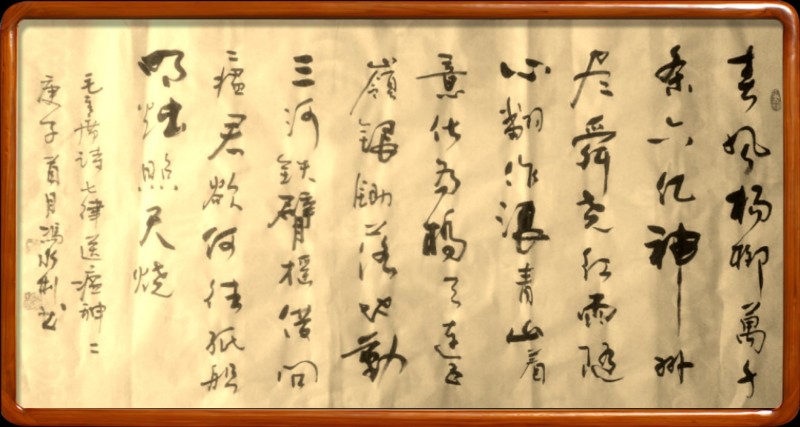 春風楊柳萬千
条六亿神州
尽舜尧红雨隨
心翻作浪青山着
意化為橋天连五
嶺银鋤落地動
三河铁臂摇借问
瘟君欲何往纸船
明烛照天烧
毛主席诗七律送瘟神二
庚子首月 水利书